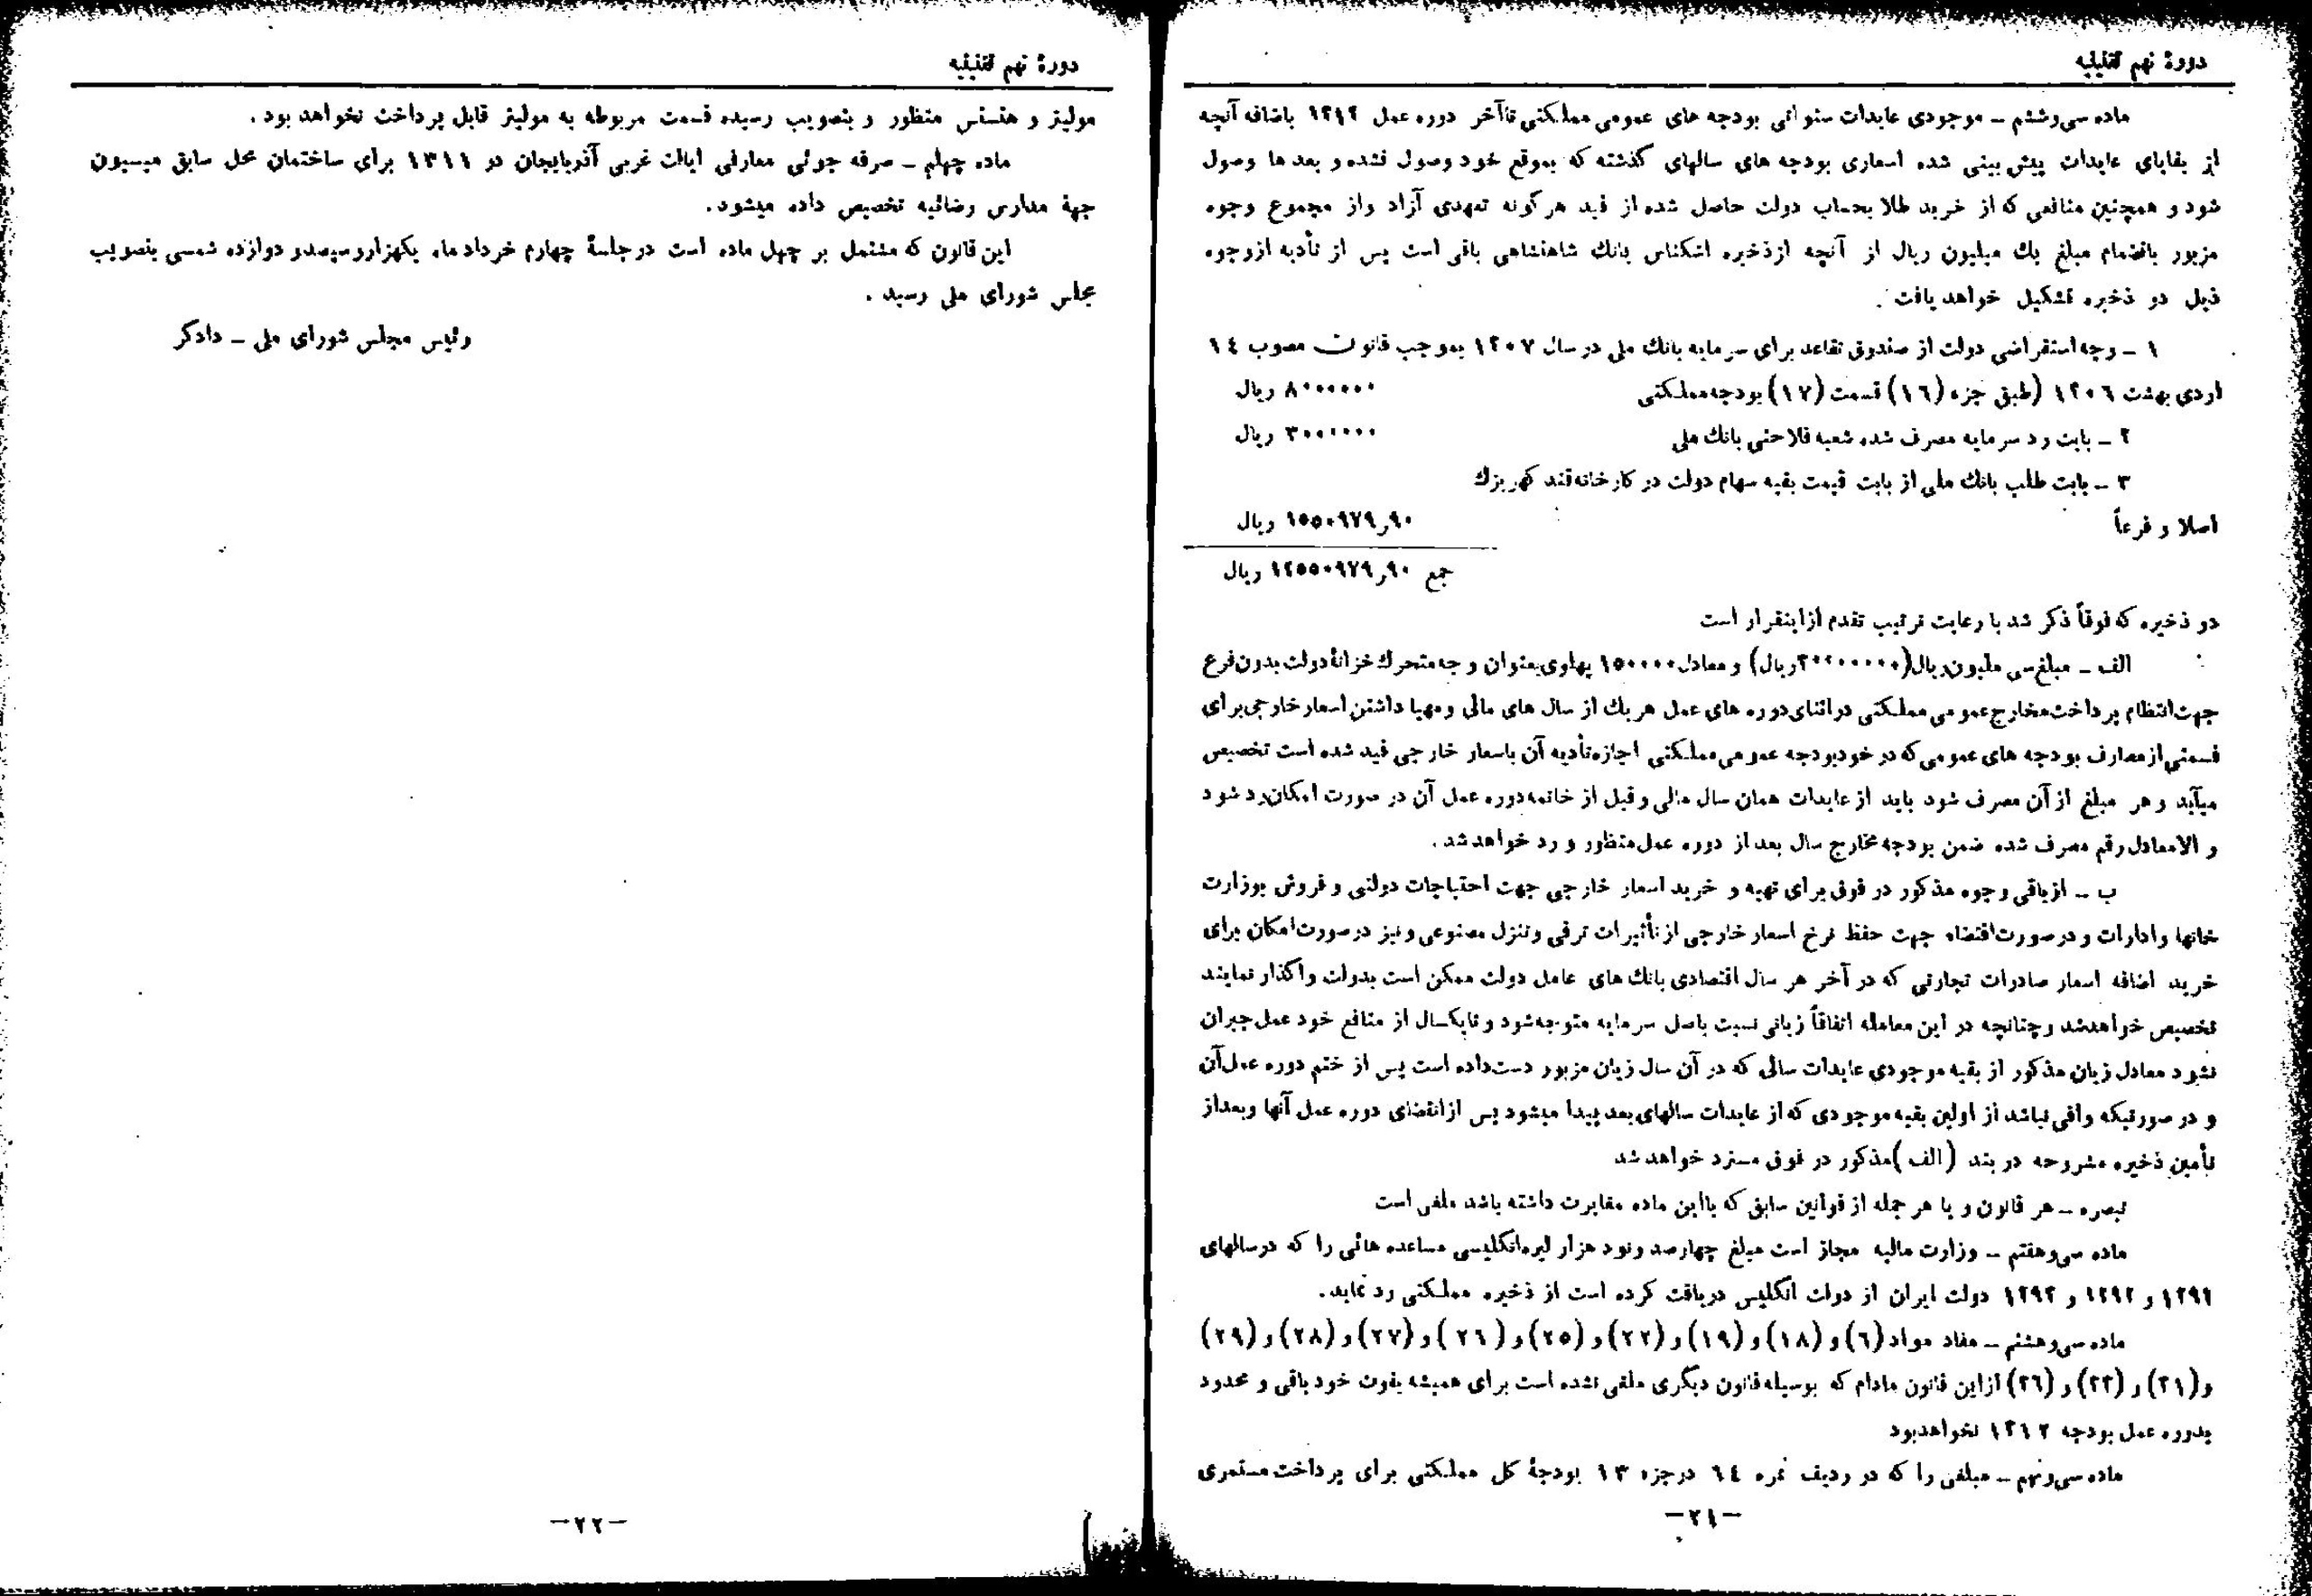 دورهٔ نهم تقنینیه
ماده سی‌وششم ـ موجودی عایدات سنواتی بودجه های عمومی مملکتی تاآخر دوره عمل ۱۳۱۲ باضافه آنچه
از بقایای عایدات پیش بینی شده اسعاری بودجه های سالهای گذشته که بموقع خود وصول نشده و بعد ها وصول
شود و همچنین منافعی که از خرید طلا بحساب دولت حاصل شده از قید هرگونه تعهدی آزاد واز مجموع وجوه
مزبور بانضمام مبلغ یك میلیون ریال از آنچه ازذخیره اشکناس بانك شاهنشاهی باقی است پس از تأدیه ازوجوه
ذیل دو ذخیره تشکیل خواهد یافت .
۱ ـ وجه استقراضی دولت از صندوق تقاعد برای سرمایه بانك ملی در سال ۱۳۰۷ بموجب قانون مصوب ۱۴
اردی بهشت ۱۳۰۶ (طبق جزء (۱۶) قسمت (۱۷) بودجه مملکتی ۸۰۰۰۰۰۰ ریال
۲ ـ بابت رد سرمایه مصرف شده شعبه فلاحتی بانك ملی ۳۰۰۰۰۰۰ ریال
۳ ـ بابت طلب بانك ملی از بابت قیمت بقیه سهام دولت در کارخانه قند کهریزك
اصلا و فرعاً ۱۵۵۰۹۷۹٫۹۰ ریال
جمع ۱۲۵۵۰۹۷۹٫۹۰ ریال
دو ذخیره که فوقاً ذکر شد با رعایت ترتیب تقدم ازاینقرار است
الف ـ مبلغ سی ملیون ریال (۳۰۰۰۰۰۰۰ ریال) و معادل ۱۵۰۰۰۰ پهلوی بعنوان وجه متحرك خزانهٔ دولت بدون فرع
جهت انتظام پرداخت مخارج عمومی مملکتی در اثنای دوره های عمل هریك از سال های مالی و مهیا داشتن اسعار خارجی برای
قسمتی از مصارف بودجه های عمومی که در خود بودجه عمومی مملکتی اجازه تأدیه آن باسعار خارجی قید شده است تخصیص
میآبد و هر مبلغ از آن مصرف شود باید از عایدات همان سال مالی و قبل از خاتمه دوره عمل آن در صورت امکان رد شود
و الا معادل رقم مصرف شده ضمن بودجه مخارج سال بعد از دوره عمل منظور و رد خواهد شد .
ب ـ از باقی وجوه مذکور در فوق برای تهیه و خرید اسعار خارجی جهت احتیاجات دولتی و فروش بوزارت
خانها و ادارات و در صورت اقتضاء جهت حفظ نرخ اسعار خارجی از تأثیرات ترقی و تنزل مصنوعی و نیز در صورت امکان برای
خرید اضافه اسعار صادرات تجارتی که در آخر هر سال اقتصادی بانك های عامل دولت ممکن است بدولت واگذار نمایند
تخصیص خواهد شد و چنانچه در این معامله اتفاقاً زیانی نسبت باصل سرمایه متوجه شود و تا یکسال از منافع خود عمل جبران
نشود معادل زیان مذکور از بقیه موجودی عایدات سالی که در آن سال زیان مزبور دست داده است پس از ختم دوره عمل آن
و در صورتیکه وافی نباشد از اولین بقیه موجودی که از عایدات سالهای بعد پیدا میشود پس از انقضای دوره عمل آنها و بعد از
تأمین ذخیره مشروحه در بند (الف) مذکور در فوق مسترد خواهد شد
تبصره ـ هر قانون و یا هر جمله از قوانین سابق که بااین ماده مغایرت داشته باشد ملغی است
ماده سی‌وهفتم ـ وزارت مالیه مجاز است مبلغ چهارصد ونود هزار لیره انگلیسی مساعده هائی را که درسالهای
۱۲۹۱ و ۱۲۹۲ و ۱۲۹۳ دولت ایران از دولت انگلیس دریافت کرده است از ذخیره مملکتی رد نماید.
ماده سی‌وهشتم ـ مفاد مواد (۶) و (۱۸) و (۱۹) و (۲۲) و (۲۵) و (۲۶) و (۲۷) و (۲۸) و (۲۹)
و (۳۱) و (۳۳) و (۳۶) ازاین قانون مادام که بوسیله قانون دیگری ملغی نشده است برای همیشه بقوت خود باقی و محدود
بدوره عمل بودجه ۱۳۱۲ نخواهدبود
ماده سی‌ونهم ـ مبلغی را که در ردیف نمره ۶۴ درجزء ۱۳ بودجهٔ کل مملکتی برای پرداخت مستمری
ـ۲۱ـ
دورهٔ نهم تقنینیه
مولیتر و هنسنس منظور و بتصویب رسیده قسمت مربوطه به مولیتر قابل پرداخت نخواهد بود .
ماده چهلم ـ صرفه جوئی معارفی ایالت غربی آذربایجان در ۱۳۱۱ برای ساختمان محل سابق میسیون
جهة مدارس رضائیه تخصیص داده میشود.
این قانون که مشتمل بر چهل ماده است در جلسهٔ چهارم خرداد ماه یکهزاروسیصدو دوازده شمسی بتصویب
مجلس شورای ملی رسید .
رئیس مجلس شورای ملی ـ دادگر
ـ۲۲ـ